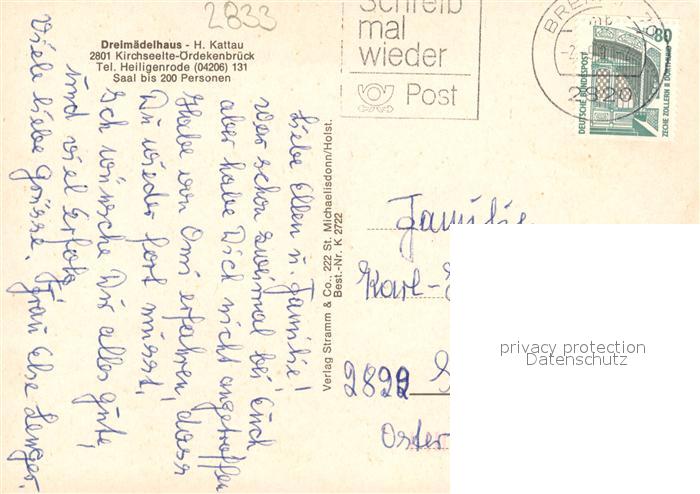 2833
Dreimädelhaus - H. Kattau
2801 Kirchseelte-Ordekenbrück
Tel. Heiligenrode (04206) 131
Saal bis 200 Personen
Schreib
mal
wieder
Post
2820
80
DEUTSCHE BUNDESPOST
ZECHE ZOLLERN II DORTMUND
Liebe Ellen u. Familie!
War schon zweimal bei Euch
aber habe Dich nicht angetroffen
Habe von Omi erfahren, dass
Du wieder fort musst,
Ich wünsche Dir alles gute,
und viel Erfolg
Viele liebe Grüsse. Frau Else
Verlag Stramm & Co., 222 St. Michaelisdonn/Holst.
Best.-Nr. K 2722
Familie
Karl-
2822
Oster
privacy protection
Datenschutz